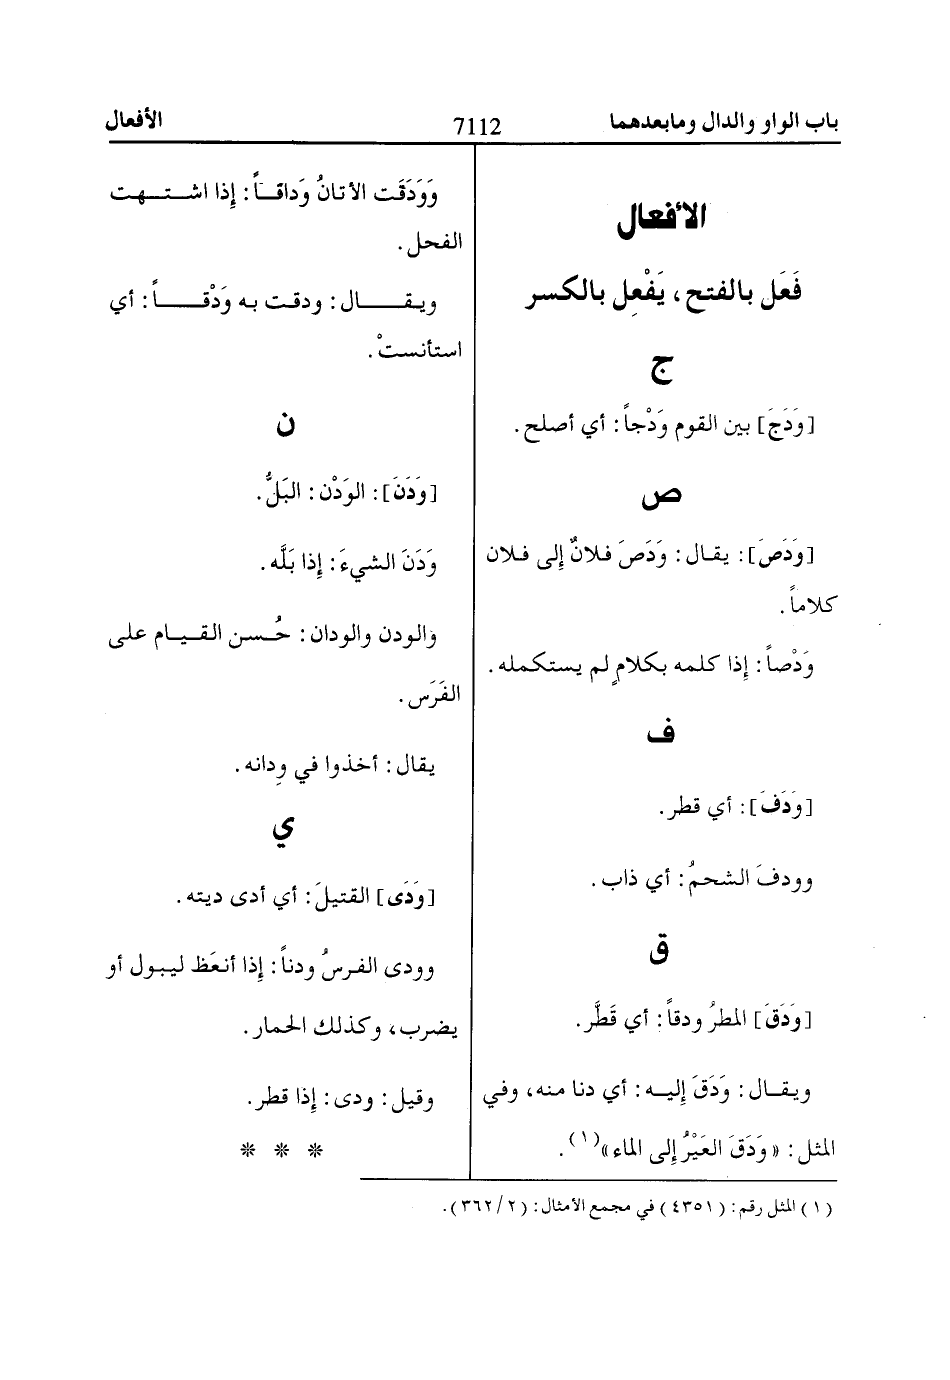 باب الواو والدال ومابعدهما
7112
الأفعال
الأفعال
فَعَل بالفتح، يَفْعِل بالكسر
ج
[وَدَجَ] بين القوم وَدْجاً: أي أصلح.
ص
[وَدَصَ]: يقال: وَدَصَ فلانٌ إلى فلان
كلاماً.
وَدْصاً: إذا كلمه بكلامٍ لم يستكمله.
ف
[وَدَفَ]: أي قطر.
وودفَ الشحمُ: أي ذاب.
ق
[وَدَقَ] المطرُ ودقاً: أي قَطَّر.
ويقال: وَدَقَ إليه: أي دنا منه، وفي
المثل: «وَدَقَ العَيْرُ إلى الماء»(١).
وَوَدَقَت الأتانُ وَداقاً: إذا اشتهت
الفحل.
ويقال: ودقت به وَدْقاً: أي
استأنستْ.
ن
[وَدَنَ]: الوَدْن: البَلُّ.
وَدَنَ الشيءَ: إذا بَلَّه.
والودن والودان: حُسن القيام على
الفَرَس.
يقال: أخذوا في وِدانه.
ي
[وَدَى] القتيلَ: أي أدى ديته.
وودى الفرسُ ودناً: إذا أنعَظ ليبول أو
يضرب، وكذلك الحمار.
وقيل: ودى: إذا قطر.
* * *
(١) المثل رقم: (٤٣٥١) في مجمع الأمثال: (٢/٣٦٢).